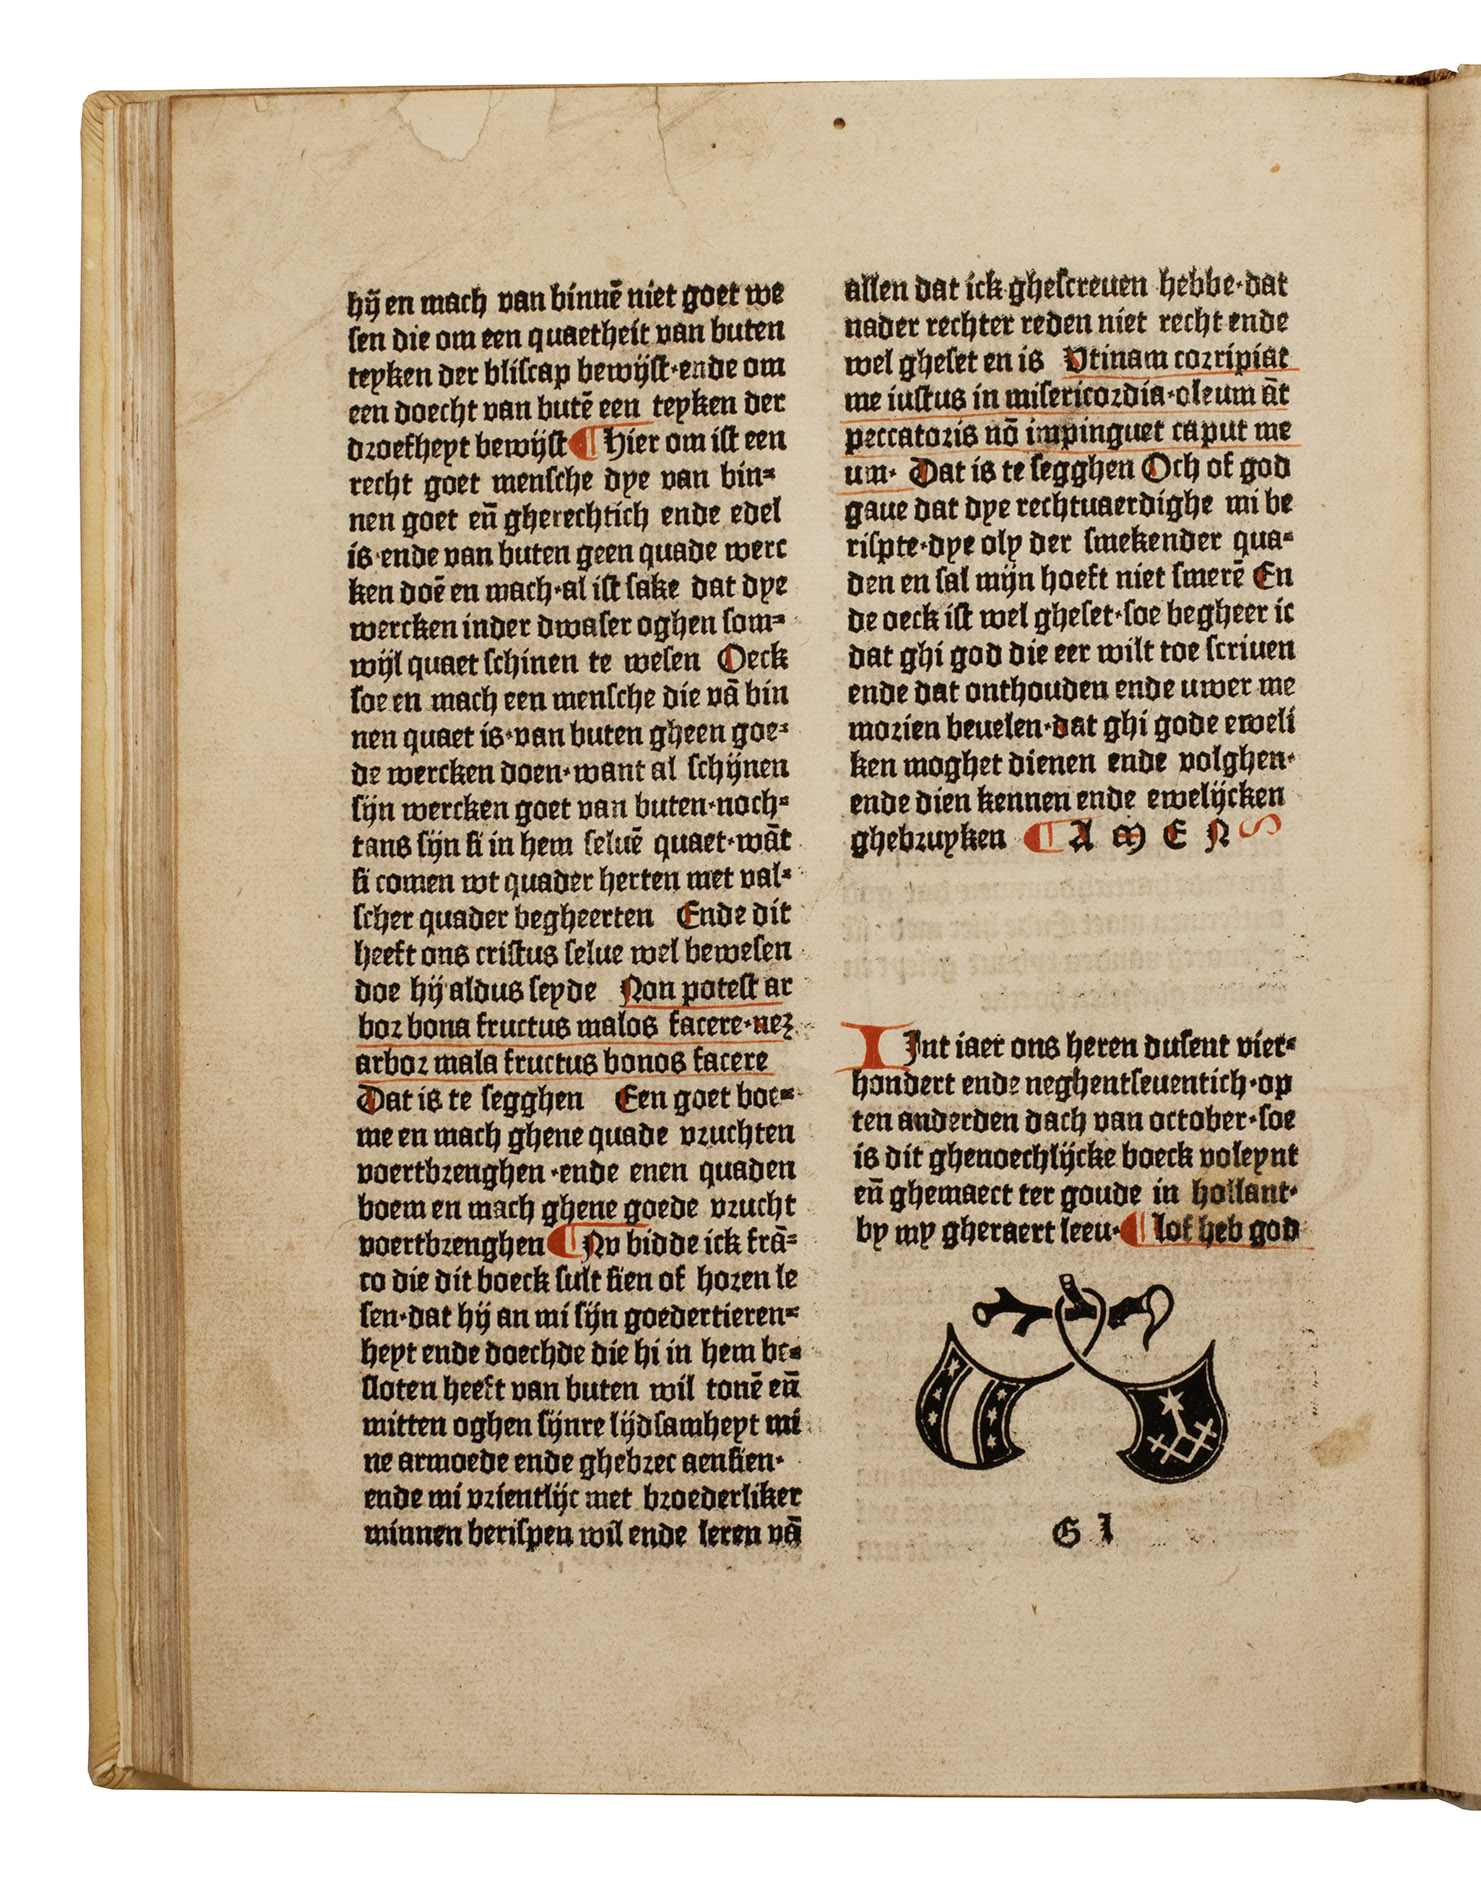 hij en mach van binnē niet goet we
sen die om een quaetheit van buten
teyken der bliscap bewijst·ende om
een doecht van butē een teyken der
droefheyt bewijst ¶ Hier om ist een
recht goet mensche dye van bin⸗
nen goet eñ gherechtich ende edel
is·ende van buten geen quade werc
ken doē en mach·al ist sake dat dye
wercken inder dwaser oghen som⸗
wijl quaet schinen te wesen Oeck
soe en mach een mensche die vā bin
nen quaet is·van buten gheen goe⸗
de wercken doen·want al schijnen
sijn wercken goet van buten·noch⸗
tans sijn si in hem seluē quaet·wāt
si comen wt quader herten met val⸗
scher quader begheerten Ende dit
heeft ons cristus selue wel bewesen
doe hij aldus seyde Non potest ar
bor bona fructus malos facere·neꝫ
arbor mala fructus bonos facere
Dat is te segghen Een goet boe⸗
me en mach ghene quade vruchten
voertbrenghen·ende enen quaden
boem en mach ghene goede vrucht
voertbrenghen ¶ Nv bidde ick frā⸗
co die dit boeck sult sien of horen le
sen·dat hij an mi sijn goedertieren⸗
heyt ende doechde die hi in hem be⸗
sloten heeft van buten wil tonē eñ
mitten oghen sijnre lijdsamheyt mi
ne armoede ende ghebrec aensien·
ende mi vrientlijc met broederliker
minnen berispen wil ende leren vā
allen dat ick ghescreuen hebbe·dat
nader rechter reden niet recht ende
wel gheset en is Vtinam corripiat
me iustus in misericordia·oleum āt
peccatoris nō impinguet caput me
um· Dat is te segghen Och of god
gaue dat dye rechtuaerdighe mi be
rispte·dye oly der smekender qua⸗
den en sal mijn hoeft niet smerē En
de oeck ist wel gheset·soe begheer ic
dat ghi god die eer wilt toe scriuen
ende dat onthouden ende uwer me
morien beuelen·dat ghi gode eweli
ken moghet dienen ende volghen·
ende dien kennen ende ewelijcken
ghebruyken ¶ A M E N
Int iaer ons heren dusent vier⸗
hondert ende neghentseuentich·op
ten anderden dach van october·soe
is dit ghenoechlijcke boeck voleynt
eñ ghemaect ter goude in hollant·
by my gheraert leeu·¶ lof heb god
G I